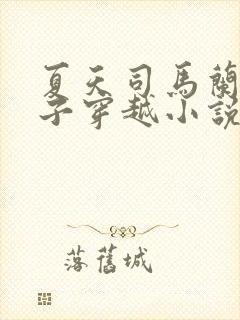 夏天司馬蘭
子穿越小說
落舊城